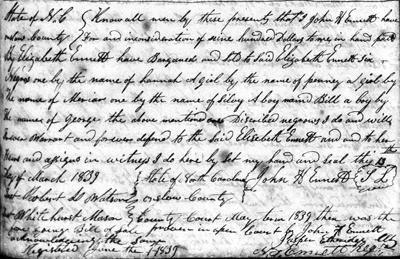 State of N.C Know all men by these presents that I John H Ennett have
County For and in consideration of nine hundred Dollars to me in hand paid
by Elizabeth Ennett have Bargained and sold to said Elizabeth Ennett Six
Negroes one by the name of hannah a Girl by the name of penney a Girl by
The name of Meriar one by the name of Silvey A boy naimd Bill a boy by
the names of George the above mentioned negroes I do and will
Warrant and forever defend to the said Elizabeth Ennett and and to her
Heirs and assigns in witness I do here by set my hand and seal this 13
day of March 1839 State of North Carolina John H Ennett Seal
Robert W Watson Onslow County
Whitehurst Mason County Court May term 1839 then was the
fore going Bill of sale proven in open Court by John H Ennett
acknowledging the same Jasper Etheridge Clk
Registered June the 1839